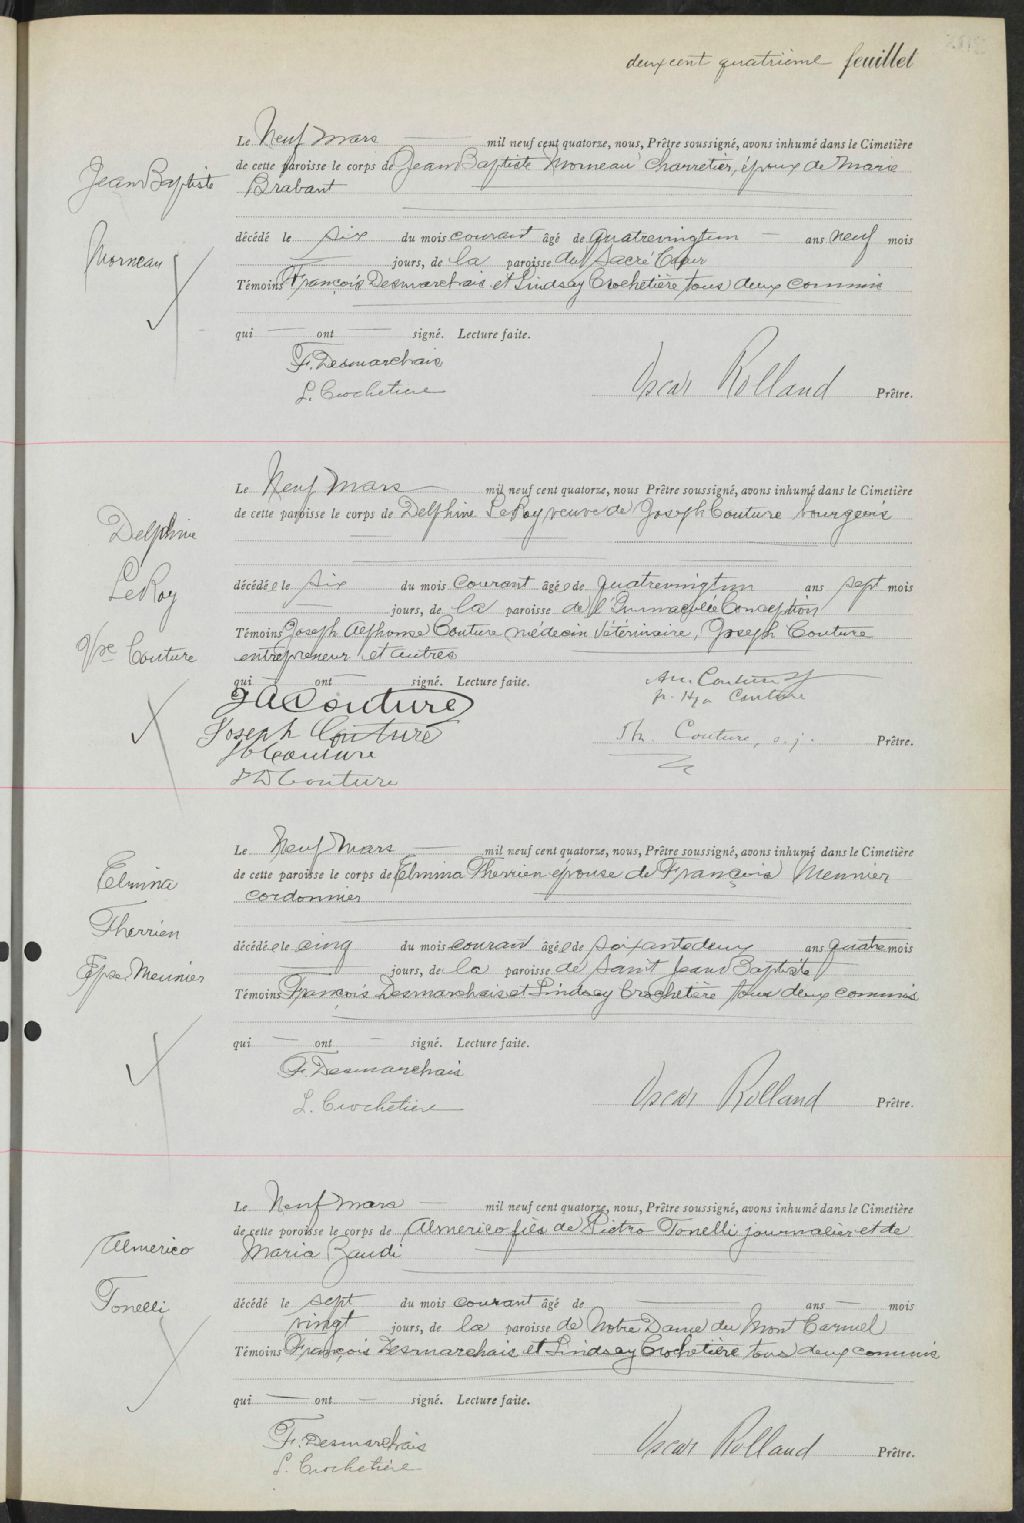 deux cent quatrième feuillet
Le Neuf Mars mil neuf cent quatorze, nous, Prêtre soussigné, avons inhumé dans le Cimetière
de cette paroisse le corps de Jean Baptiste Morneau Charretier, époux de Marie
Brabant
Jean Baptiste
Morneau
décédé le six du mois courant âgé de quatrevingtun ans neuf mois
jours, de la paroisse du Sacré Cœur
Témoins François Desmarchais et Lindsay Crochetière tous deux commis
qui ont signé. Lecture faite.
F. Desmarchais
L. Crochetière
Oscar Rolland Prêtre.
Le Neuf Mars mil neuf cent quatorze, nous Prêtre soussigné, avons inhumé dans le Cimetière
de cette paroisse le corps de Delphine LeRoy veuve de Joseph Couture bourgeois
Delphine
LeRoy
Vve Couture
décédée le six du mois courant âgée de quatrevingtun ans sept mois
jours, de la paroisse de l'Immaculée Conception
Témoins Joseph Alphonse Couture médecin Vétérinaire, Joseph Couture
entrepreneur et autres
qui ont signé. Lecture faite.
J A Couture
Joseph Couture
Couture
J D Couture
Couture
Couture
Th. Couture, s.j. Prêtre.
Le Neuf Mars mil neuf cent quatorze, nous, Prêtre soussigné, avons inhumé dans le Cimetière
de cette paroisse le corps de Elmina Therrien épouse de François Meunier
cordonnier
Elmina
Therrien
Epse Meunier
décédée le cinq du mois courant âgée de soixantedeux ans quatre mois
jours, de la paroisse de Saint Jean Baptiste
Témoins François Desmarchais et Lindsay Crochetière tous deux commis
qui ont signé. Lecture faite.
F. Desmarchais
L. Crochetière
Oscar Rolland Prêtre.
Le Neuf Mars mil neuf cent quatorze, nous, Prêtre soussigné, avons inhumé dans le Cimetière
de cette poroisse le corps de Almerico fils de Pietro Tonelli journalier et de
Maria Zaudi
Almerico
Tonelli
décédé le sept du mois courant âgé de ans mois
vingt jours, de la paroisse de Notre Dame du Mont Carmel
Témoins François Desmarchais et Lindsay Crochetière tous deux commis
qui ont signé. Lecture faite.
F. Desmarchais
L. Crochetière
Oscar Rolland Prêtre.